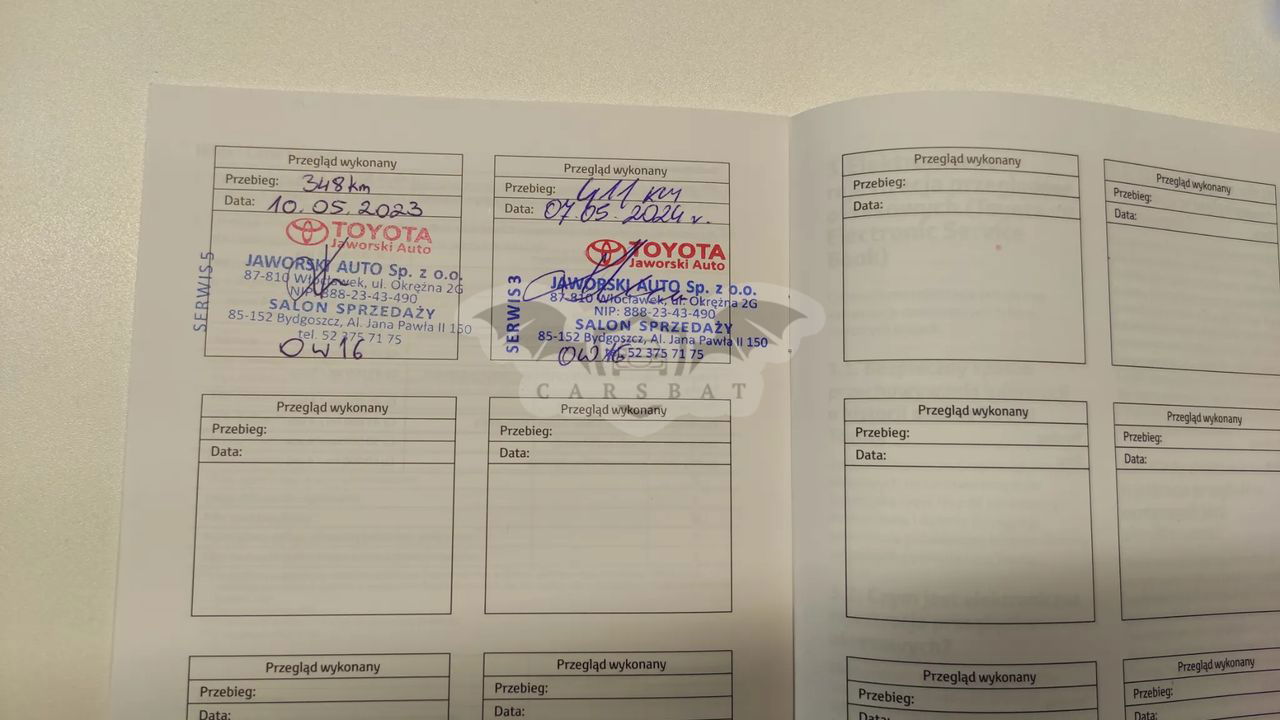 Przegląd wykonany
Przebieg: 348 km
Data: 10.05.2023
TOYOTA
Jaworski Auto
JAWORSKI AUTO Sp. z o.o.
87-810 Włocławek, ul. Okrężna 2G
NIP: 888-23-43-490
SALON SPRZEDAŻY
85-152 Bydgoszcz, Al. Jana Pawła II 150
tel. 52 375 71 75
SERWIS 5
OW16
Przegląd wykonany
Przebieg: 411 km
Data: 07.05.2024 r.
TOYOTA
Jaworski Auto
JAWORSKI AUTO Sp. z o.o.
87-810 Włocławek, ul. Okrężna 2G
NIP: 888-23-43-490
SALON SPRZEDAŻY
85-152 Bydgoszcz, Al. Jana Pawła II 150
52 375 71 75
SERWIS 3
OW16
CARSBAT
Przegląd wykonany
Przebieg:
Data:
Przegląd wykonany
Przebieg:
Data:
Przegląd wykonany
Przebieg:
Data:
Przegląd wykonany
Przebieg:
Data:
Przegląd wykonany
Przebieg:
Data:
Przegląd wykonany
Przebieg:
Data:
Przegląd wykonany
Przebieg:
Data:
Przegląd wykonany
Przebieg:
Data:
Przegląd wykonany
Przebieg:
Data:
Przegląd wykonany
Przebieg:
Data: